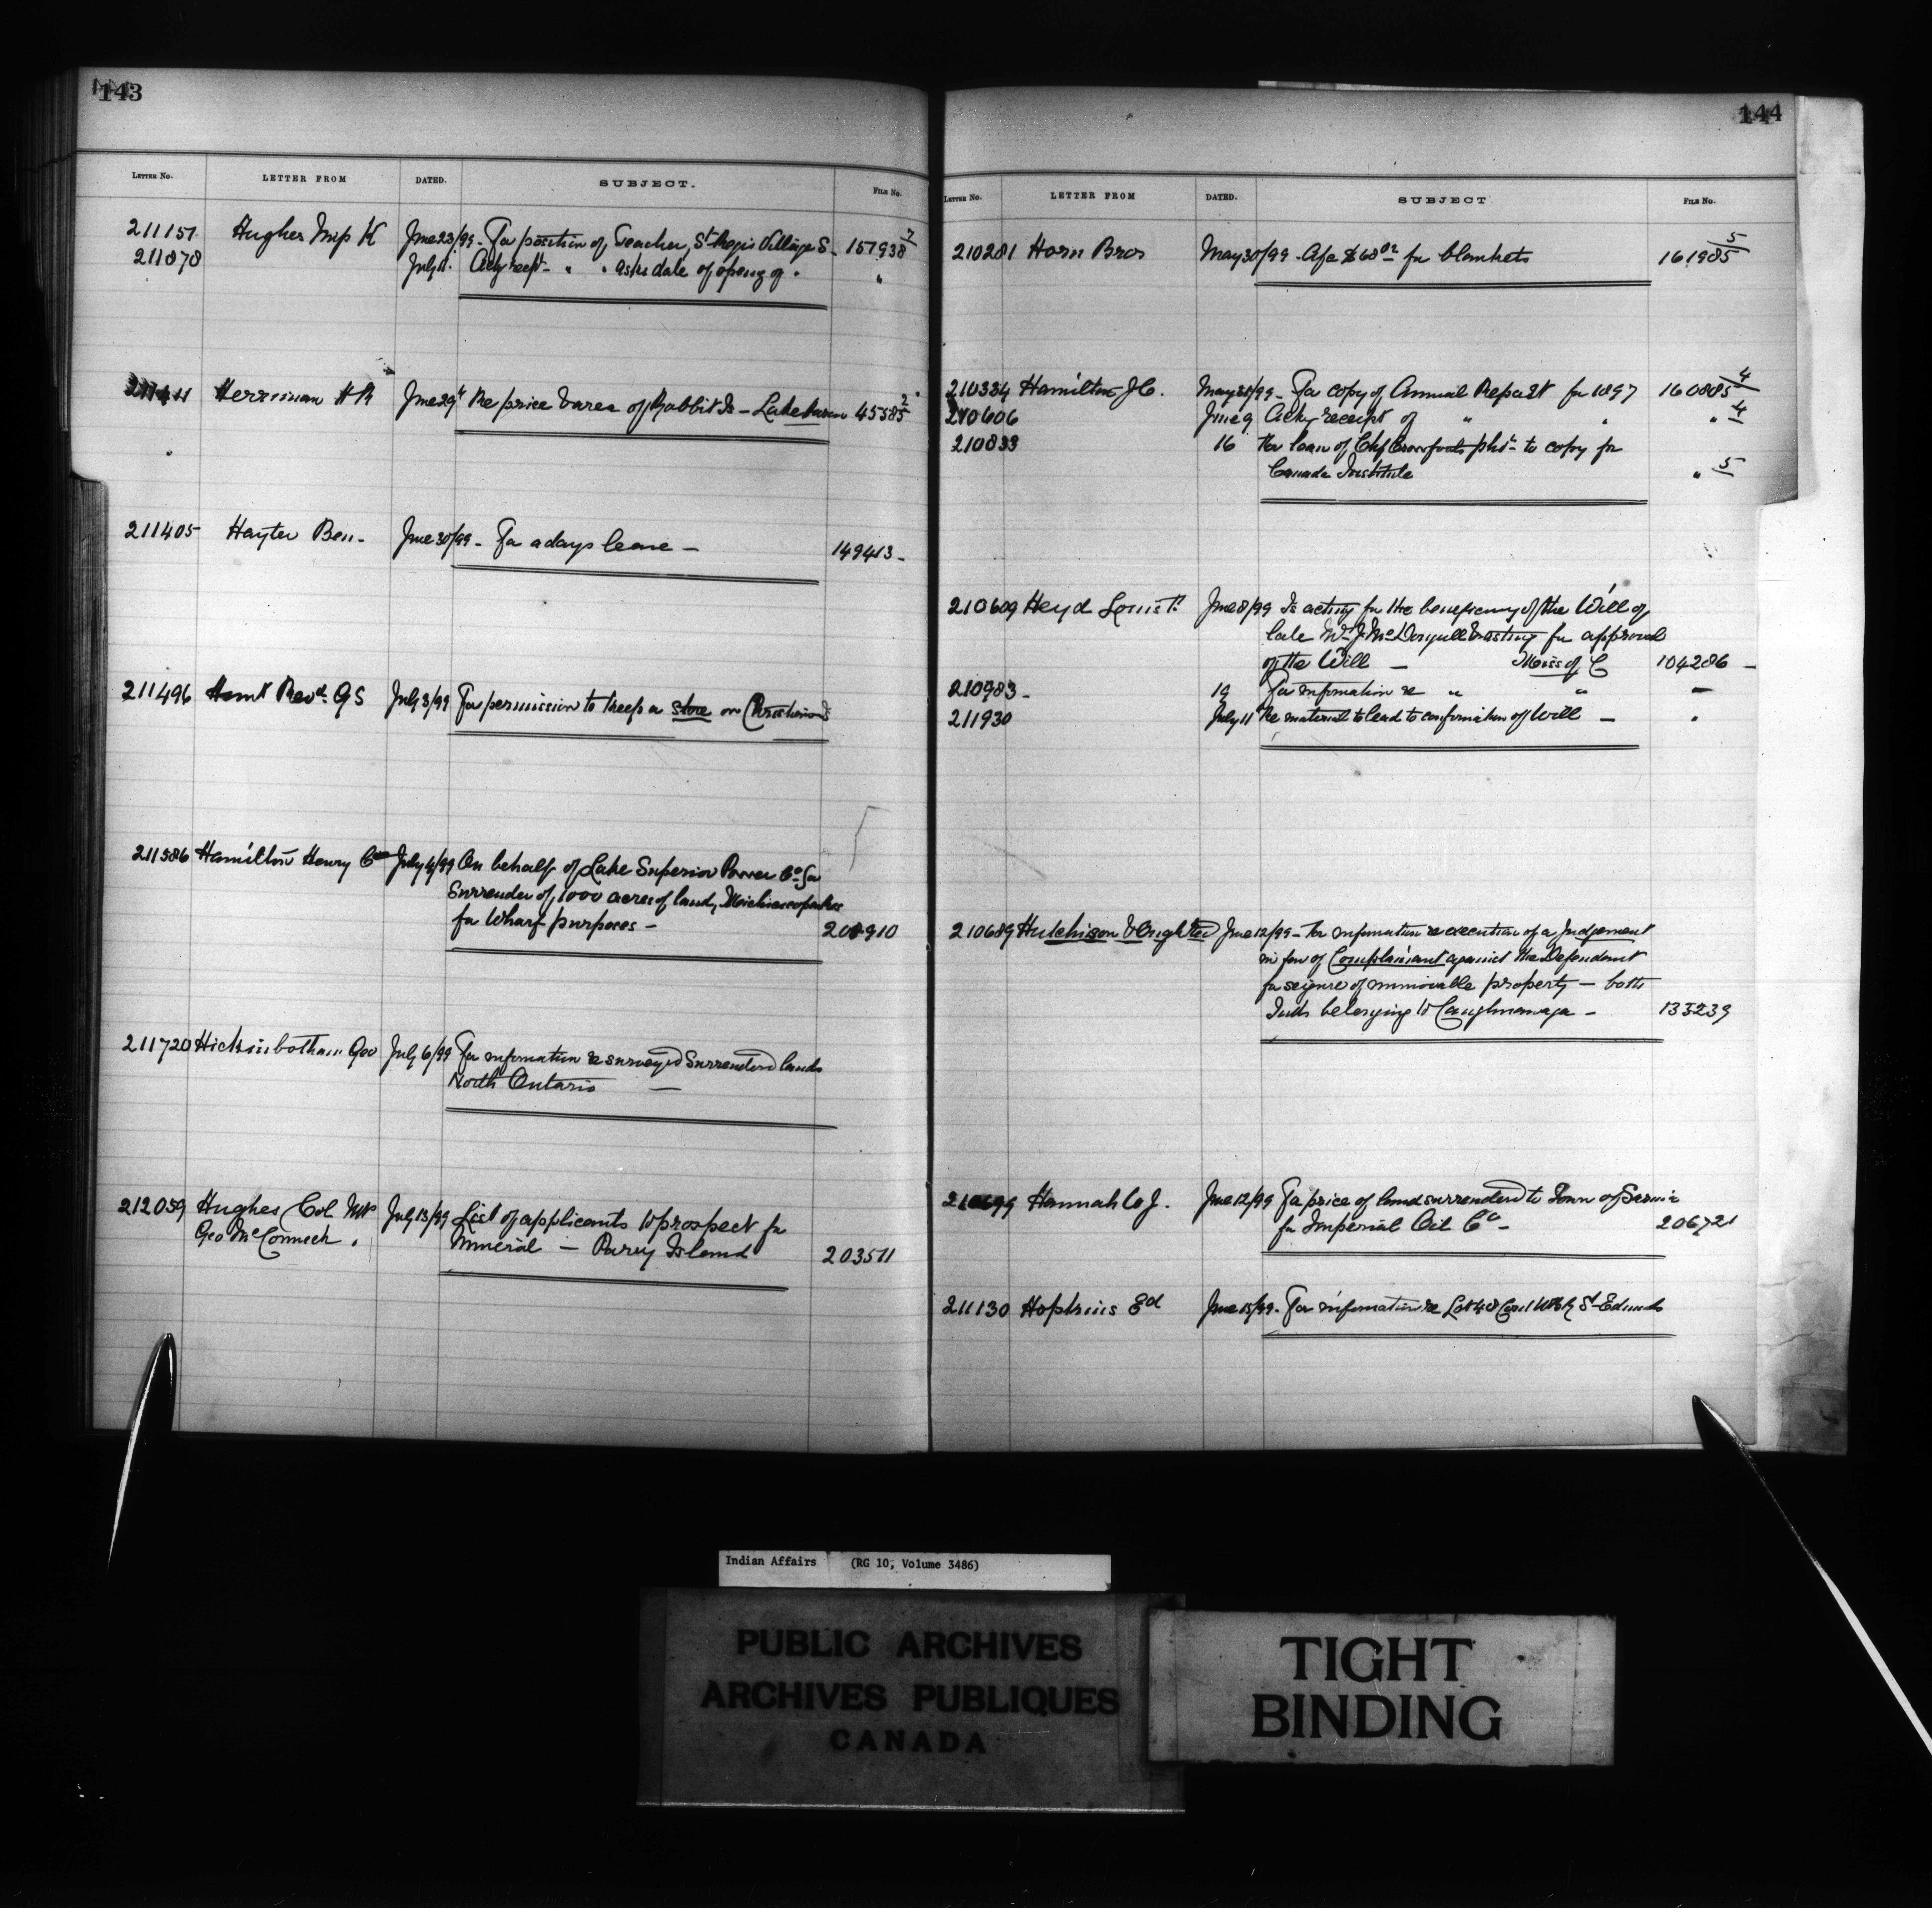 143
LETTER NO. LETTER FROM DATED. SUBJECT. FILE NO.
211151 Hughes K June 23/99 - For position of Teacher, St Regis Village S - 157938 7
211878 July 11. Ackg recpt - " " asks date of openg of " "
Herriman H R June 29th Re price & area of Rabbit Is - Lake Huron 45585 2
211405 Hayter Ben - June 30/99 - For a days leave - 149413 -
211496 Revd. G S July 3/99 For permission to keep a store on
211586 Hamilton Henry C July 4/99 On behalf of Lake Superior Power Co. for
Surrender of 1000 acres of land,
for Wharf purposes - 208910
211720 Hickinbotham Geo July 6/99 For information re surveyed Surrendered lands
North Ontario -
212059 Hughes Col July 13/99 List of applicants to prospect for
Geo McCormick . Mineral - Parry Island 203511
144
LETTER NO. LETTER FROM DATED. SUBJECT FILE NO.
210281 Horn Bros May 30/99 - Afc $68 02 for blankets 161985 5
210334 Hamilton J C. May 31/99 - For copy of Annual Report for 1897 160805 4
210606 June 9 Ackg receipt of " " " 4
210833 16 For loan of Chf Crawfords phto to copy for
Canada Institute " 5
210609 Heyd Louis F. June 8/99 Is acting for the beneficiary of the Will of
late Wm J McDougall & asking for approval
of the Will - Miss of C 104286 -
210983 - 19 For information re " " -
211930 July 11 Re material to lead to confirmation of Will - "
210689 Hutchison & Oughtred June 12/99 - For information re execution of a Judgement
in fav of Complainant against the Defendant
for seizure of immovable property - both
Inds belonging to Caughnawaga - 133239
210699 Hannah W J. June 12/99 For price of land surrendered to Town of Sarnia
for Imperial Oil Co - 206721
211130 Hopkins Ed June 15/99 - For information re Lot 48 Con 1 St Edmunds
Indian Affairs (RG 10, Volume 3486)
PUBLIC ARCHIVES
ARCHIVES PUBLIQUES
CANADA
TIGHT
BINDING